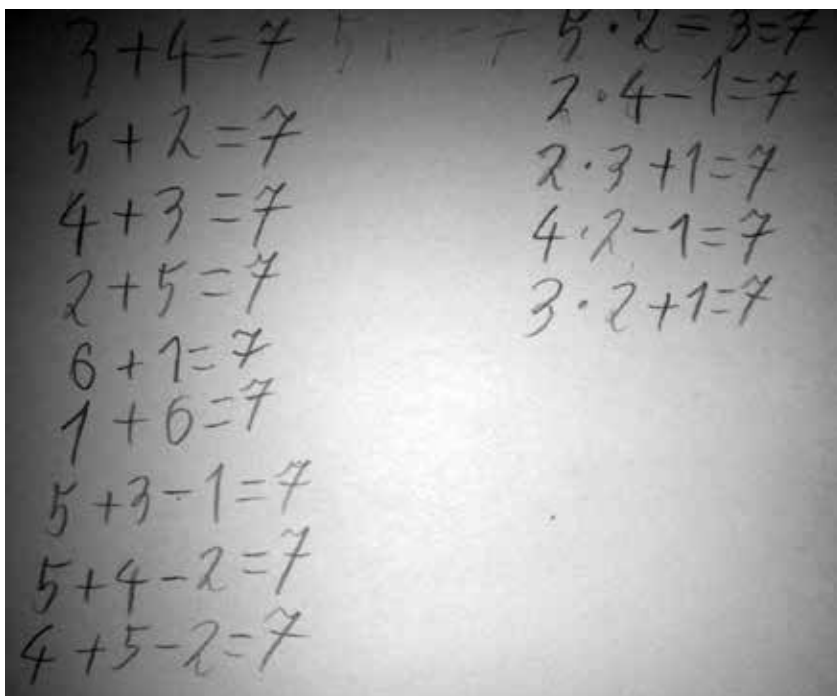 3+4=7
5+2=7
4+3=7
2+5=7
6+1=7
1+6=7
5+3-1=7
5+4-2=7
4+5-2=7
5·2-3=7
2·4-1=7
2·3+1=7
4·2-1=7
3·2+1=7